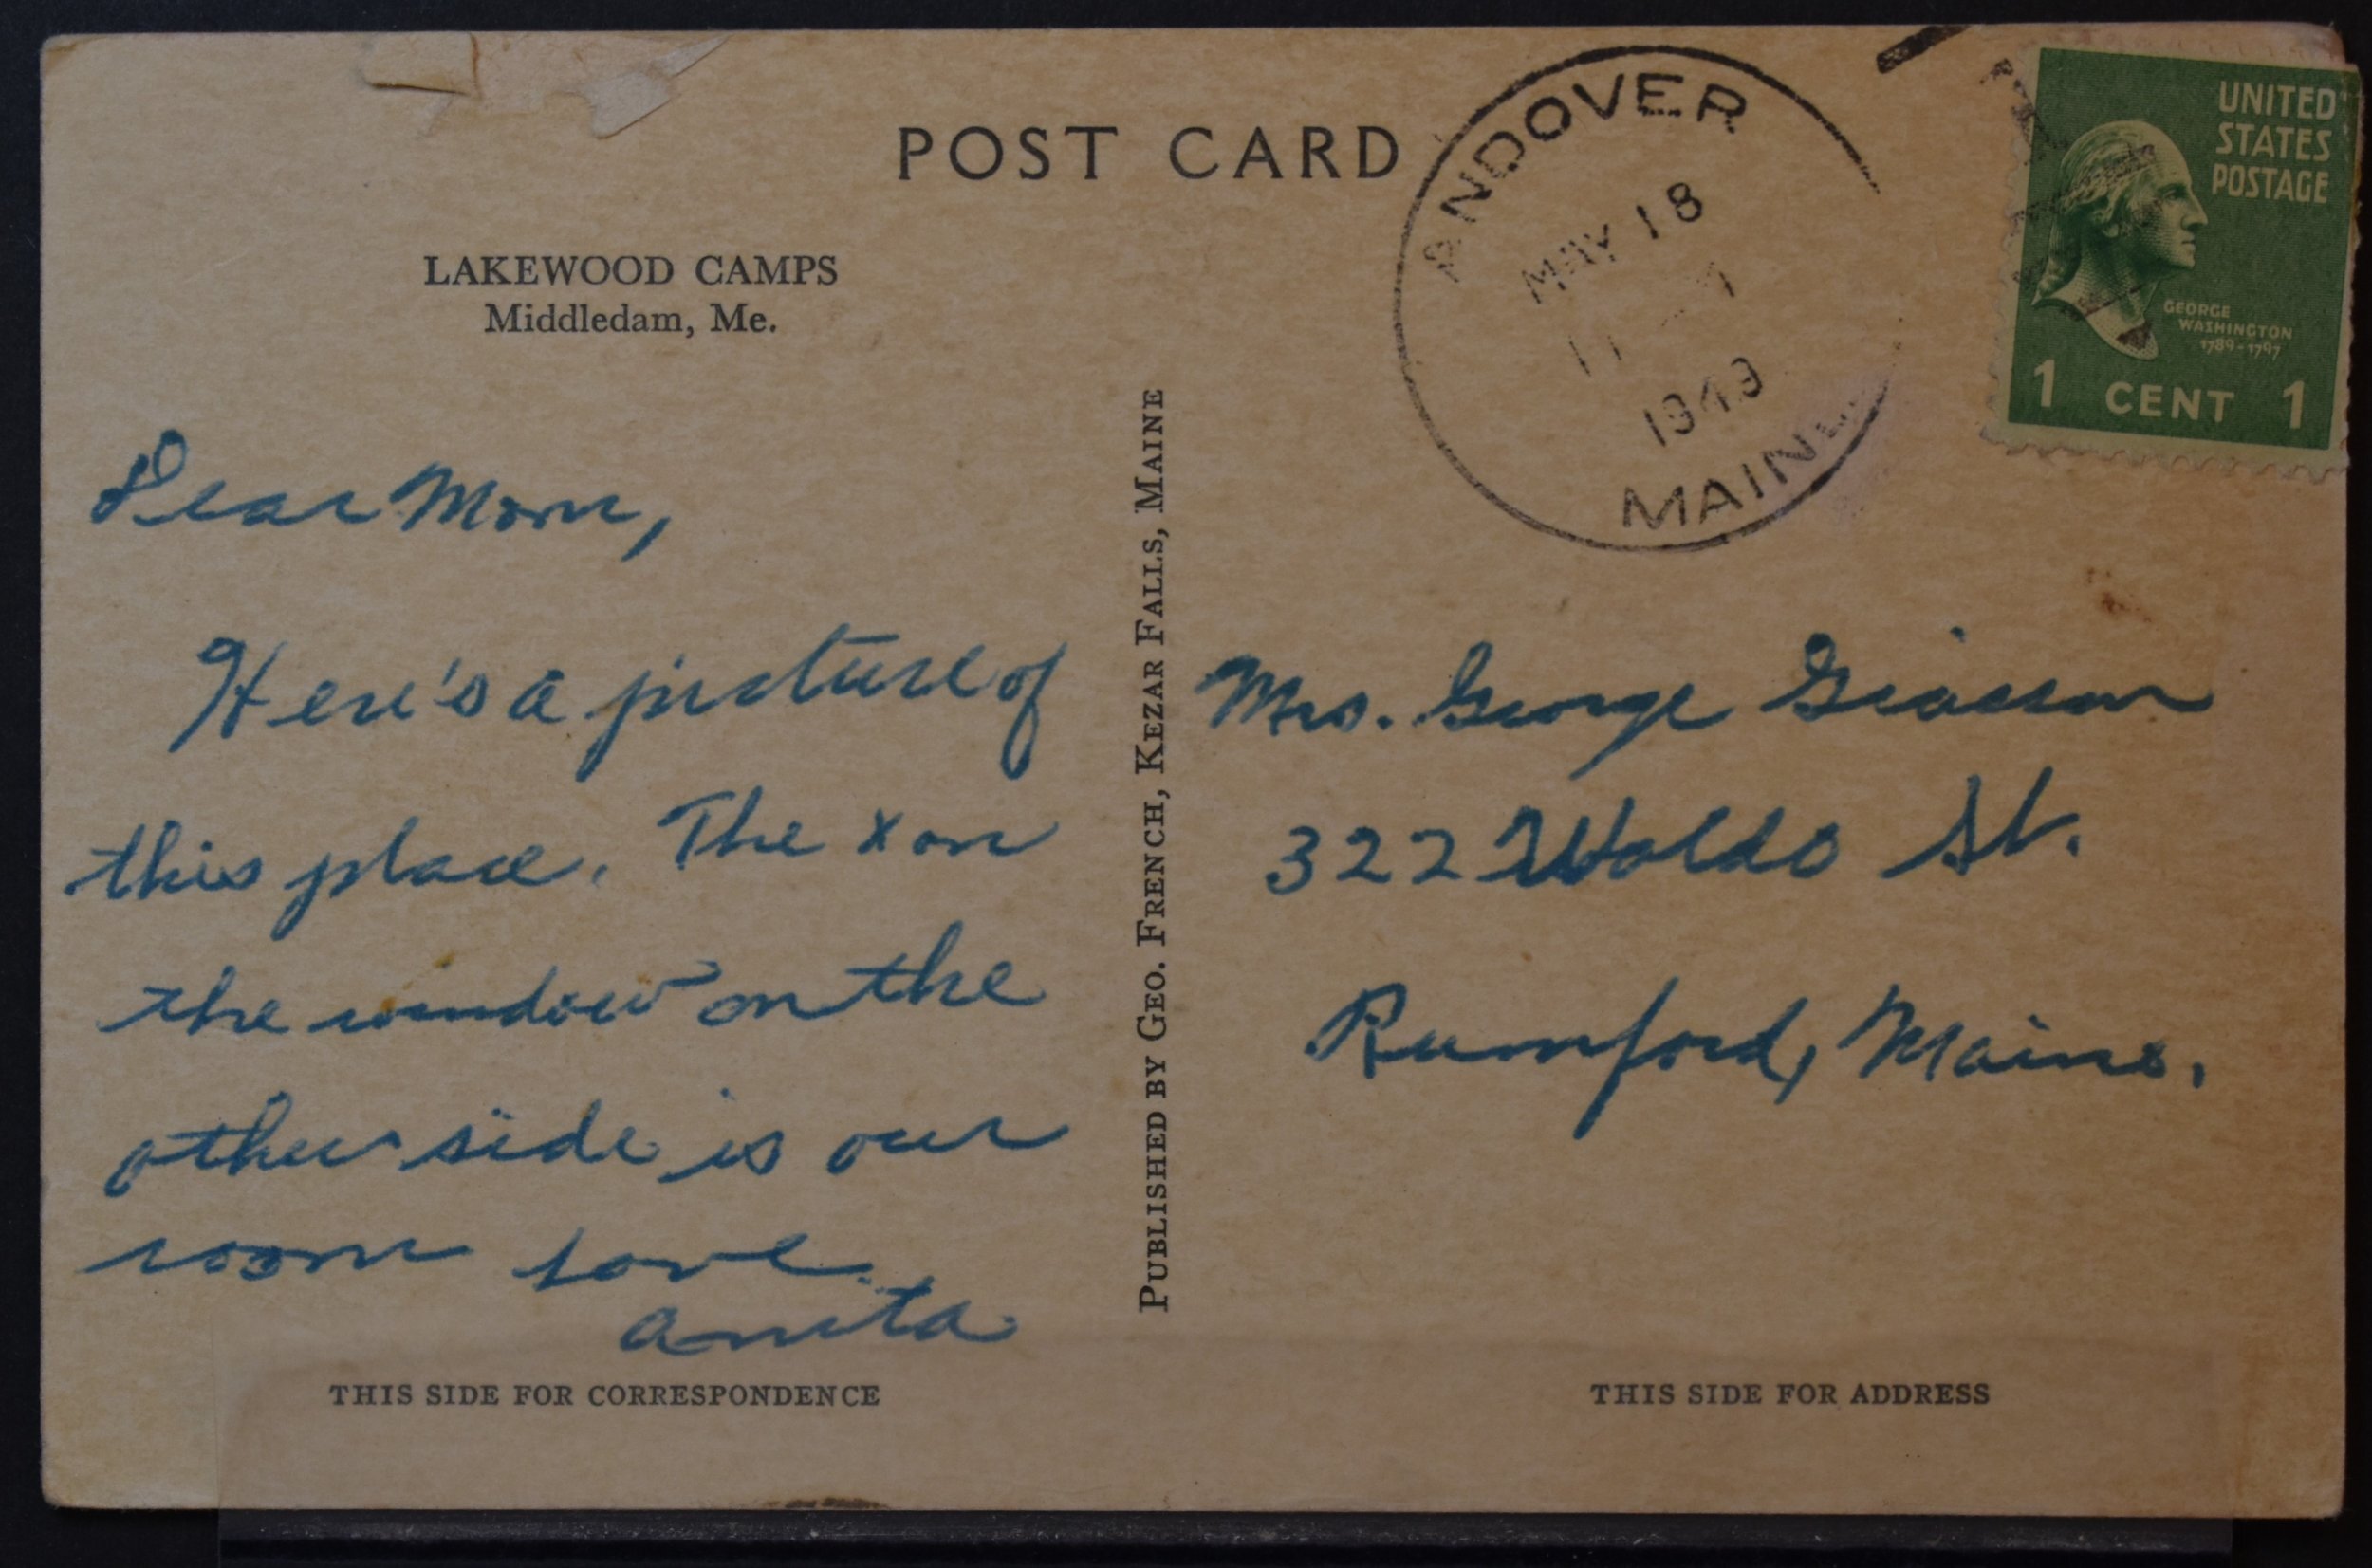 POST CARD
LAKEWOOD CAMPS
Middledam, Me.
Dear Mom,
Here's a picture of
this place. The x on
the window on the
other side is our
room love
Anita
THIS SIDE FOR CORRESPONDENCE
PUBLISHED BY GEO. FRENCH, KEZAR FALLS, MAINE
ANDOVER
MAY 18
1949
MAINE
UNITED
STATES
POSTAGE
GEORGE
WASHINGTON
1789-1797
1 CENT 1
Mrs. George
322 Waldo St.
Rumford, Maine.
THIS SIDE FOR ADDRESS